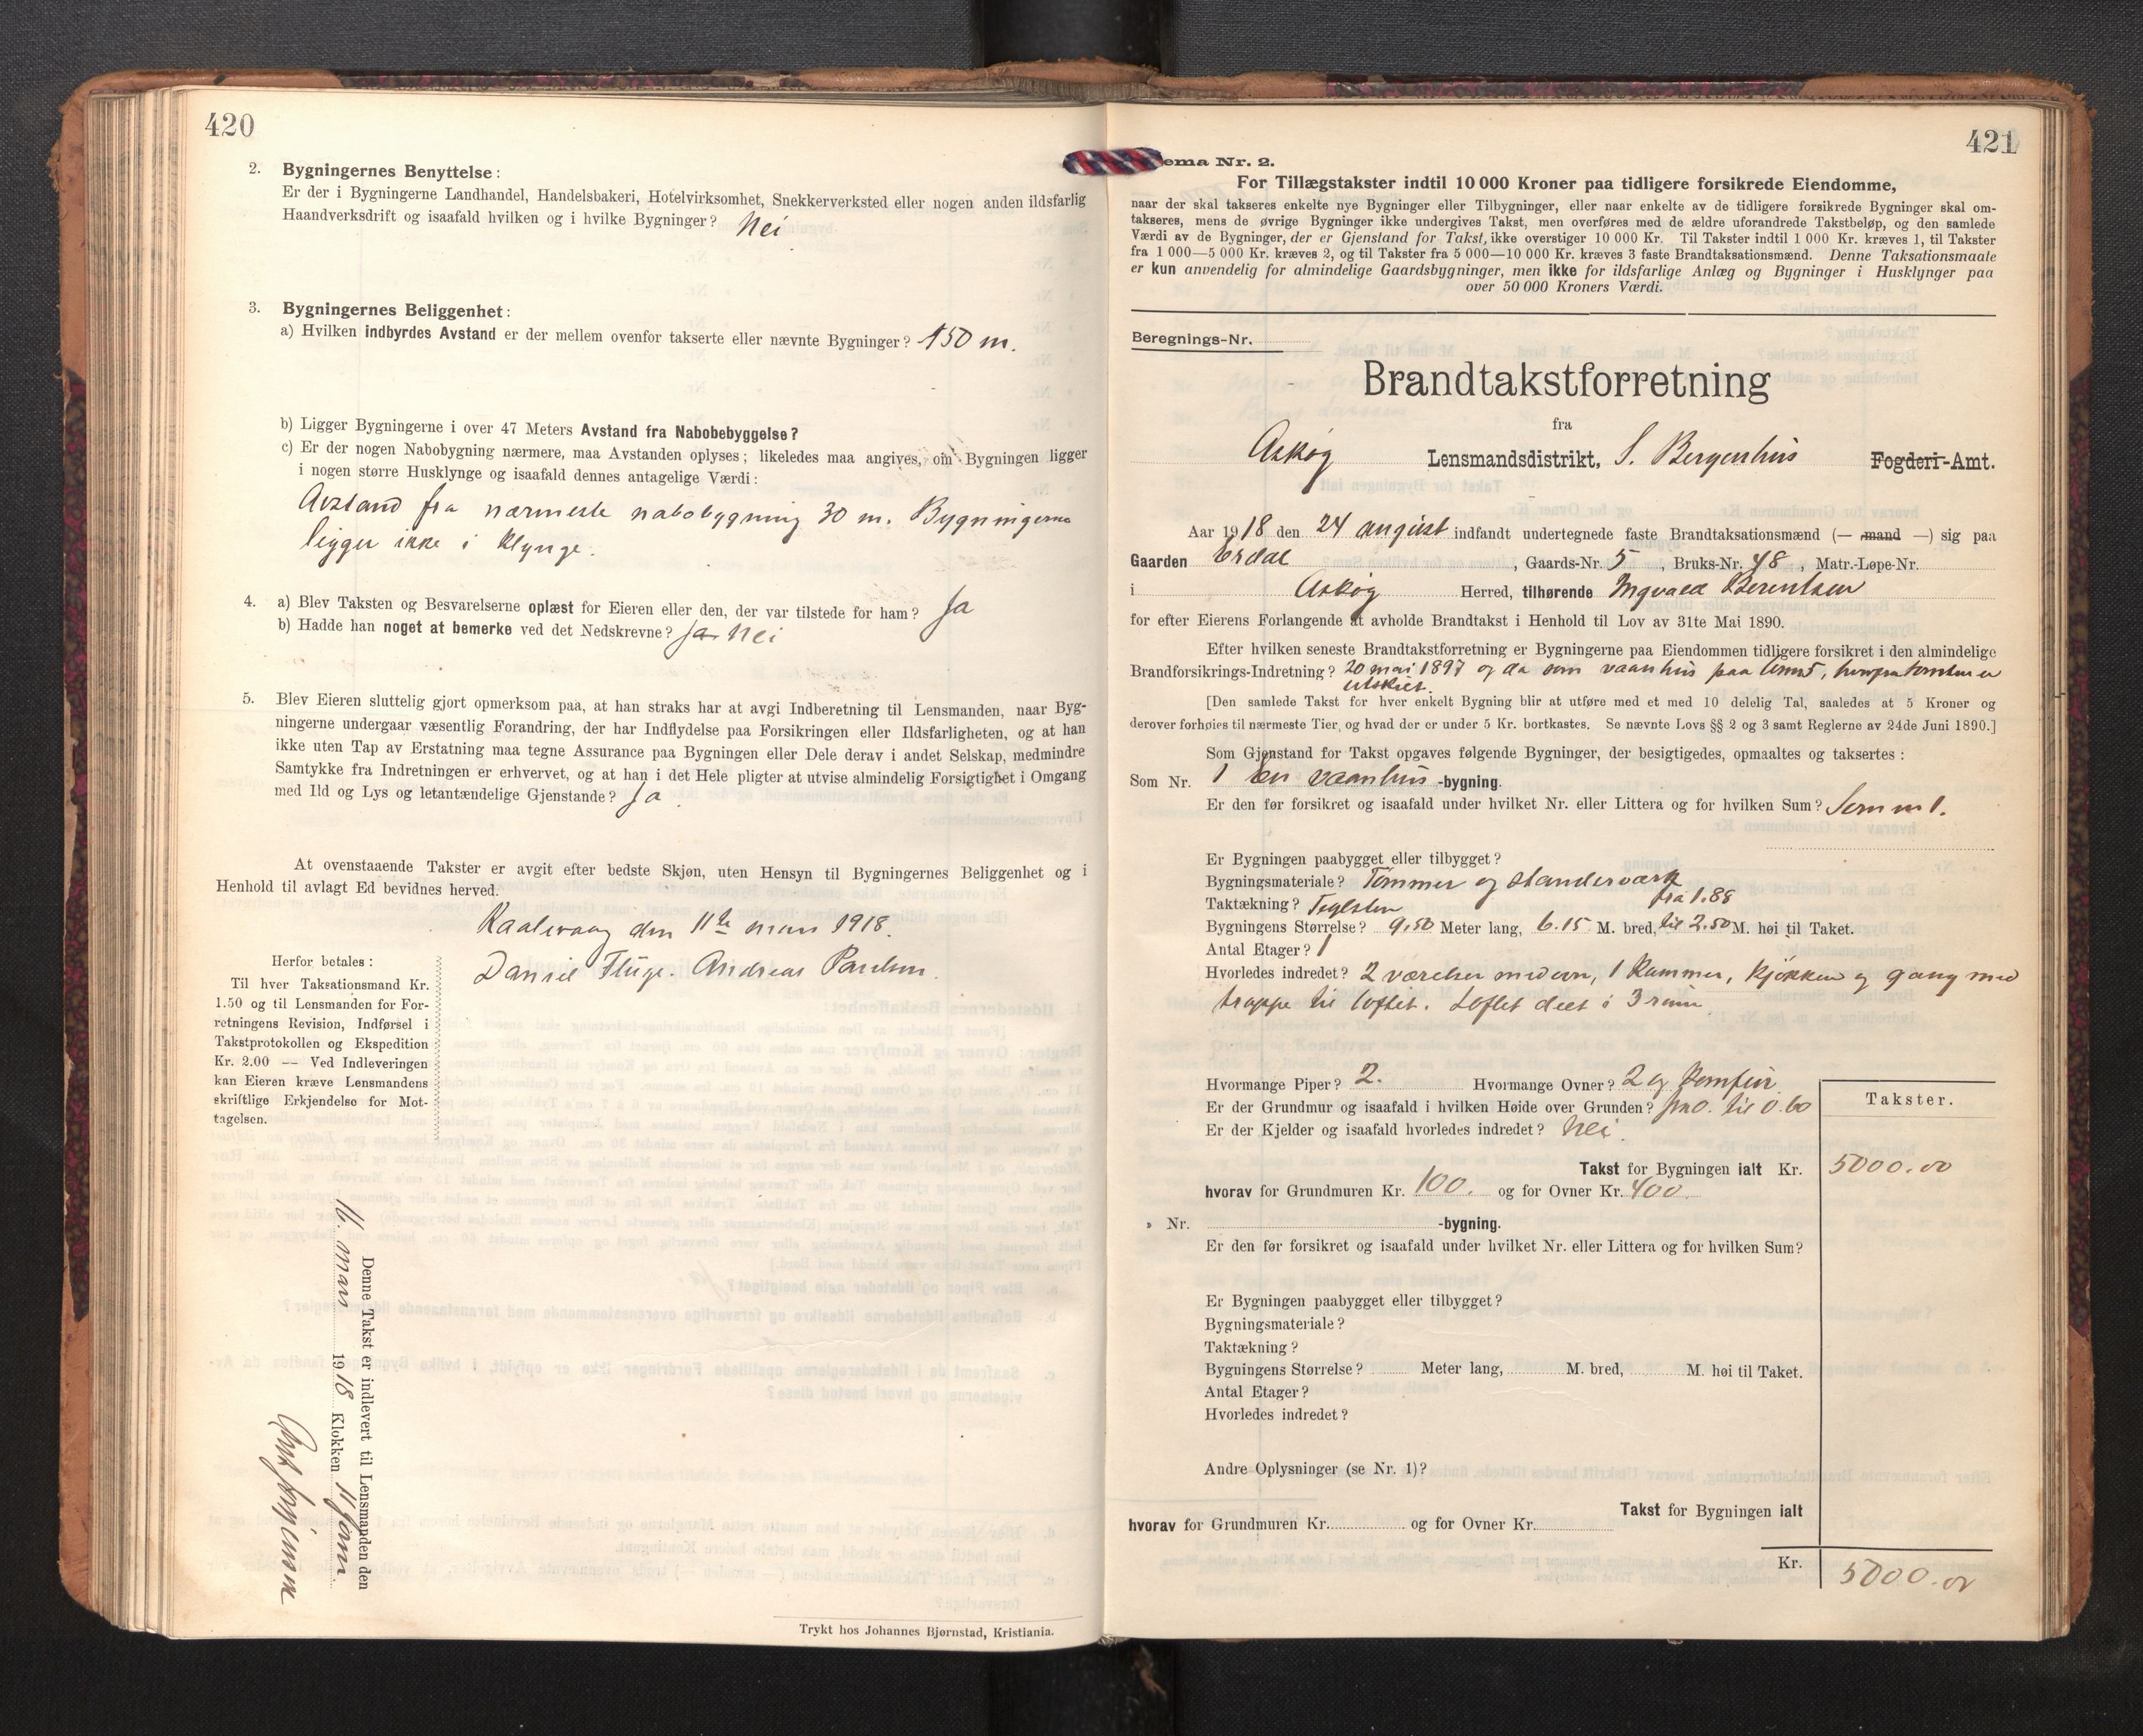 420
2. Bygningernes Benyttelse:
Er der i Bygningerne Landhandel, Handelsbakeri, Hotelvirksomhet, Snekkerverksted eller nogen anden ildsfarlig
Haandverksdrift og isaafald hvilken og i hvilke Bygninger? Nei
3. Bygningernes Beliggenhet:
a) Hvilken indbyrdes Avstand er der mellem ovenfor takserte eller nævnte Bygninger? 150 m.
b) Ligger Bygningerne i over 47 Meters Avstand fra Nabobebyggelse?
c) Er der nogen Nabobygning nærmere, maa Avstanden oplyses; likeledes maa angives, om Bygningen ligger
i nogen større Husklynge og isaafald dennes antagelige Værdi:
Avstand fra nærmeste nabobygning 30 m. Bygningerne
ligger ikke i klynge.
4. a) Blev Taksten og Besvarelserne oplæst for Eieren eller den, der var tilstede for ham? Ja
b) Hadde han noget at bemerke ved det Nedskrevne? Ja Nei
5. Blev Eieren sluttelig gjort opmerksom paa, at han straks har at avgi Indberetning til Lensmanden, naar Byg-
ningerne undergaar væsentlig Forandring, der har Indflydelse paa Forsikringen eller Ildsfarligheten, og at han
ikke uten Tap av Erstatning maa tegne Assurance paa Bygningen eller Dele derav i andet Selskap, medmindre
Samtykke fra Indretningen er erhvervet, og at han i det Hele pligter at utvise almindelig Forsigtighet i Omgang
med Ild og Lys og letantændelige Gjenstande? Ja
At ovenstaaende Takster er avgit efter bedste Skjøn, uten Hensyn til Bygningernes Beliggenhet og i
Henhold til avlagt Ed bevidnes herved.
den 11te mars 1918.
Daniel Fluge. Andreas Paulsen.
Herfor betales:
Til hver Taksationsmand Kr.
1.50 og til Lensmanden for For-
retningens Revision, Indførsel i
Takstprotokollen og Ekspedition
Kr. 2.00 — Ved Indleveringen
kan Eieren kræve Lensmandens
skriftlige Erkjendelse for Mot-
tagelsen.
Denne Takst er indlevert til Lensmanden den
16. mars 1918 Klokken 11 form
Trykt hos Johannes Bjørnstad, Kristiania.
421
ema Nr. 2.
For Tillægstakster indtil 10 000 Kroner paa tidligere forsikrede Eiendomme,
naar der skal takseres enkelte nye Bygninger eller Tilbygninger, eller naar enkelte av de tidligere forsikrede Bygninger skal om-
takseres, mens de øvrige Bygninger ikke undergives Takst, men overføres med de ældre uforandrede Takstbeløp, og den samlede
Værdi av de Bygninger, der er Gjenstand for Takst, ikke overstiger 10 000 Kr. Til Takster indtil 1 000 Kr. kræves 1, til Takster
fra 1 000—5 000 Kr. kræves 2, og til Takster fra 5 000—10 000 Kr. kræves 3 faste Brandtaksationsmænd. Denne Taksationsmaate
er kun anvendelig for almindelige Gaardsbygninger, men ikke for ildsfarlige Anlæg og Bygninger i Husklynger paa
over 50 000 Kroners Værdi.
Beregnings-Nr.
Brandtakstforretning
fra
Askøy Lensmandsdistrikt, S. Bergenhus Fogderi-Amt.
Aar 1918 den 24 august indfandt undertegnede faste Brandtaksationsmænd (— mand —) sig paa
Gaarden Erdal, Gaards-Nr. 5, Bruks-Nr. 48, Matr.-Løpe-Nr.
i Askøy Herred, tilhørende Ingvald Berentsen
for efter Eierens Forlangende at avholde Brandtakst i Henhold til Lov av 31te Mai 1890.
Efter hvilken seneste Brandtakstforretning er Bygningerne paa Eiendommen tidligere forsikret i den almindelige
Brandforsikrings-Indretning? 20 mai 1897 og da som vaanhus paa er
utskilt.
[Den samlede Takst for hver enkelt Bygning blir at utføre med et med 10 delelig Tal, saaledes at 5 Kroner og
derover forhøies til nærmeste Tier, og hvad der er under 5 Kr. bortkastes. Se nævnte Lovs §§ 2 og 3 samt Reglerne av 24de Juni 1890.]
Som Gjenstand for Takst opgaves følgende Bygninger, der besigtigedes, opmaaltes og taksertes:
Som Nr. 1 En vaanhus -bygning.
Er den før forsikret og isaafald under hvilket Nr. eller Littera og for hvilken Sum? Som nr 1.
Er Bygningen paabygget eller tilbygget?
Bygningsmateriale? Tømmer og standerværk
Taktækning? Teglsten fra 1.88
Bygningens Størrelse? 9,50 Meter lang, 6.15 M. bred, til 2.50 M. høi til Taket.
Antal Etager? 1
Hvorledes indredet? 2 værelser med ovn, 1 Kammer, Kjøkken og gang med
trappe til loftet. Loftet delt i 3 rum
Hvormange Piper? 2. Hvormange Ovner? 2 og Komfur
Er der Grundmur og isaafald i hvilken Høide over Grunden? fra 0. til 0.60
Er der Kjelder og isaafald hvorledes indredet? Nei.
Takster.
Takst for Bygningen ialt Kr. 5000.00
hvorav for Grundmuren Kr. 100. og for Ovner Kr. 400.
» Nr. -bygning.
Er den før forsikret og isaafald under hvilket Nr. eller Littera og for hvilken Sum?
Er Bygningen paabygget eller tilbygget?
Bygningsmateriale?
Taktækning?
Bygningens Størrelse? Meter lang, M. bred, M. høi til Taket.
Antal Etager?
Hvorledes indredet?
Andre Oplysninger (se Nr. 1)?
Takst for Bygningen ialt
hvorav for Grundmuren Kr. og for Ovner Kr.
Kr. 5000.00